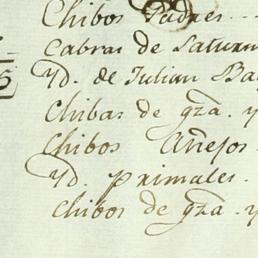 Chibos Padres
Cabras de Saturn
Yd. de Julian Ba
Chibas de gza. y
Chibos Añejos
Yd. primales.
Chibos de gza. y